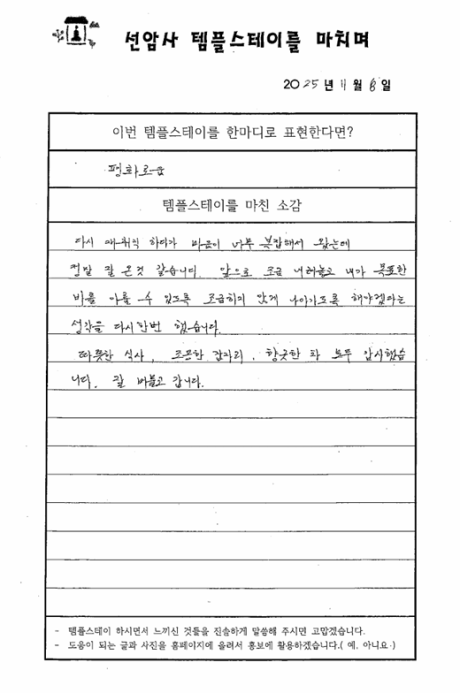 선암사 템플스테이를 마치며
2025년 11월 8일
이번 템플스테이를 한마디로 표현한다면?
평화로움
템플스테이를 마친 소감
다시 재취직 하려다 마음이 너무 복잡해서 왔는데
정말 잘 온것 같습니다. 앞으로 조금 내려놓고 내가 목표한
바를 이룰 수 있도록 조급하지 않게 나아가도록 해야겠다는
생각을 다시한번 했습니다.
따뜻한 식사, 조용한 잠자리, 향긋한 차 모두 감사했습
니다. 잘 머물고 갑니다.
- 템플스테이 하시면서 느끼신 것들을 진솔하게 말씀해 주시면 고맙겠습니다.
- 도움이 되는 글과 사진을 홈페이지에 올려서 홍보에 활용하겠습니다.( 예. 아니요.)